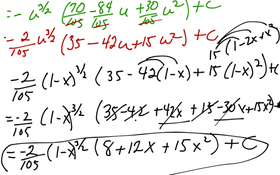 = - u^3/2 (70/105 - 84/105 u + 30/105 u²) + C
- 2/105 u^3/2 (35 - 42u + 15u²) + C 15(1-2x+x²
-2/105 (1-x)^3/2 (35 - 42(1-x) + 15(1-x)²) + C
= -2/105 (1-x)^3/2 (35 - 42 + 42x + 15 - 30x + 15x²) +
= -2/105 (1-x)^3/2 (8 + 12x + 15x²) + C